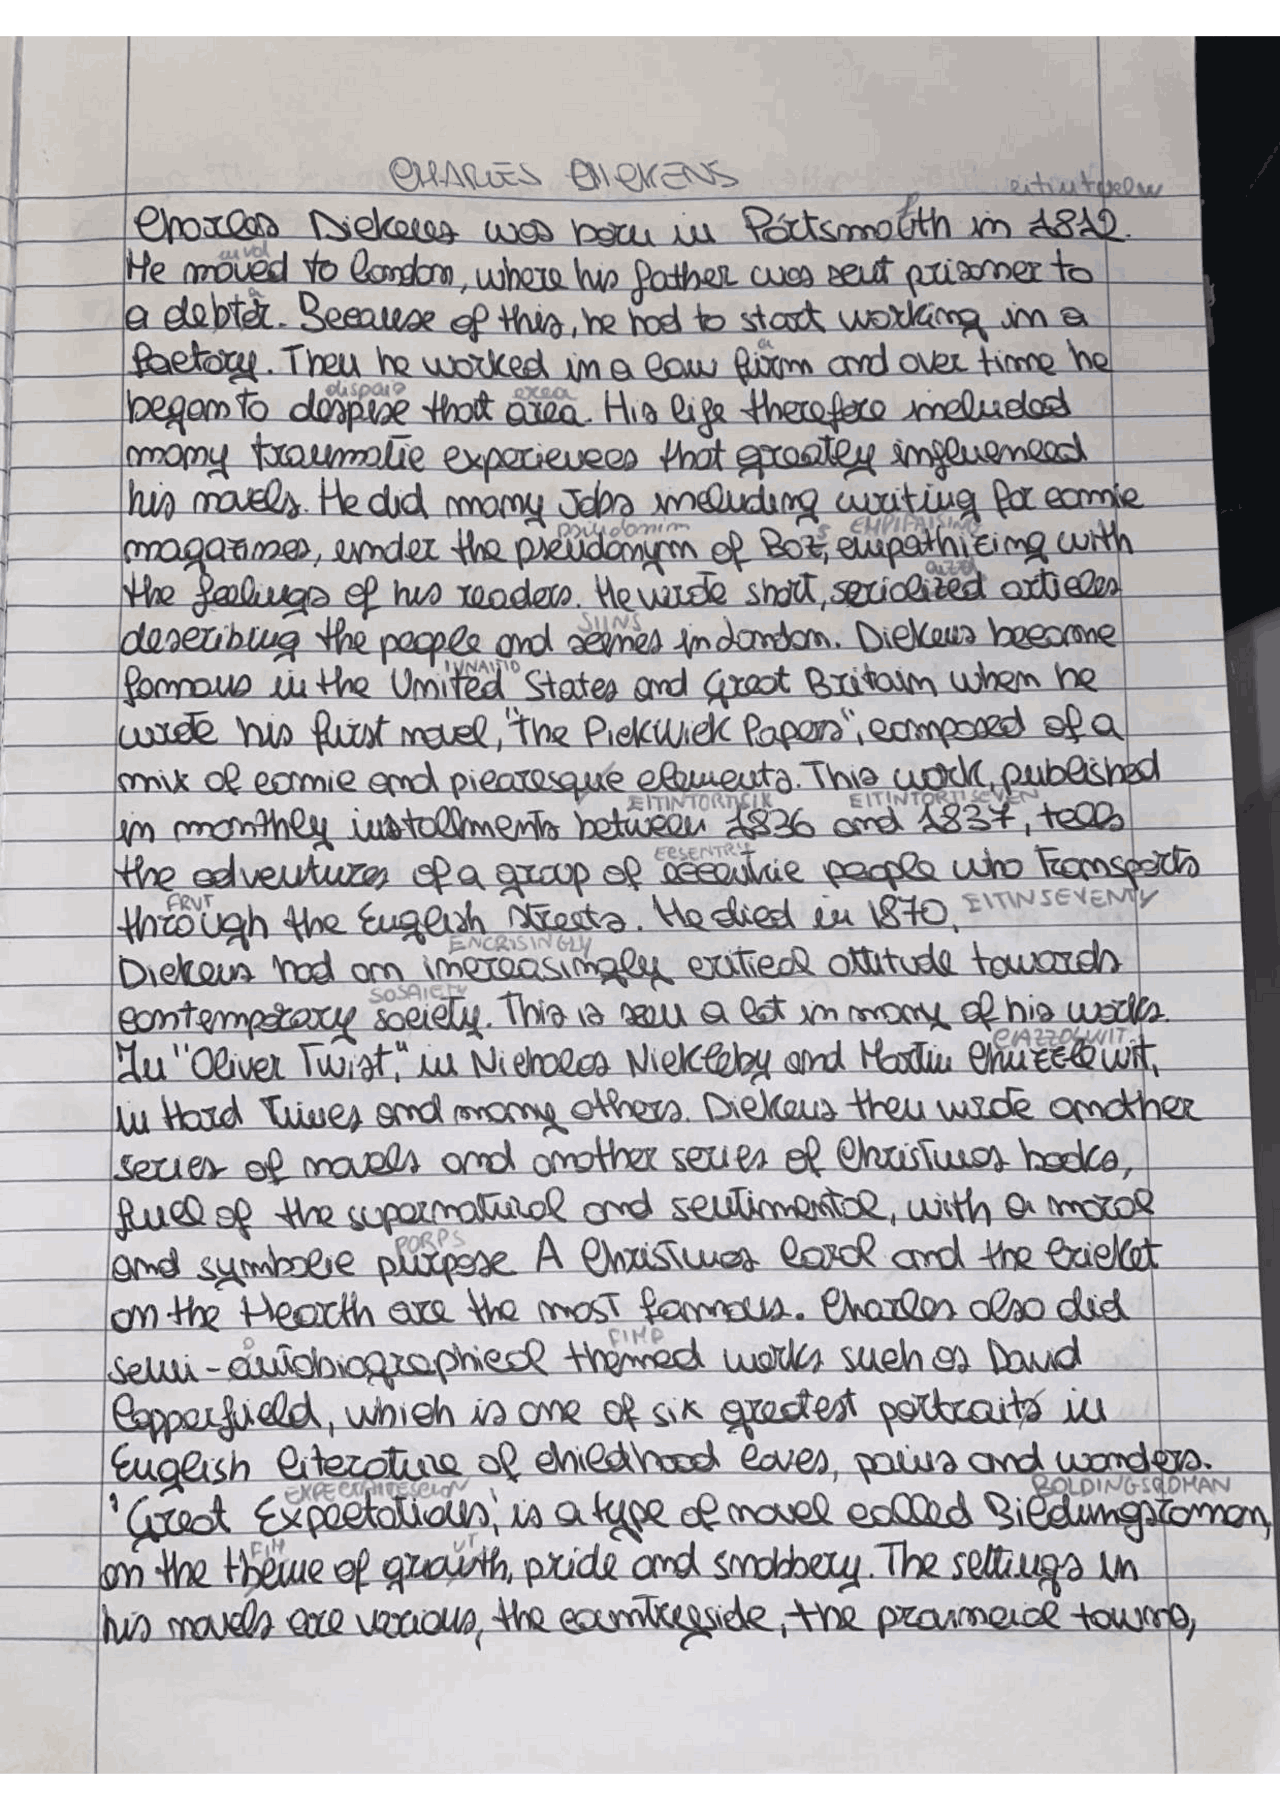 CHARLES DICKENS
eitintuelw
Charles Dickens was born in Portsmouth in 1812.
He moved to London, where his father was sent prisoner to
a debtor. Because of this, he had to start working in a
factory. Then he worked in a law firm and over time he
dispais
began to despise that area. His life therefore included
many traumatic experiences that greatly influenced
his novels. He did many jobs including writing for comic
psiudonim EMPIFAISING
magazines, under the pseudonym of Boz, empathizing with
the feelings of his readers. He wrote short, serialized articles
SIINS
describing the people and scenes in London. Dickens became
IUNAITID
famous in the United States and Great Britain when he
wrote his first novel, "The Pickwick Papers", composed of a
mix of comic and picaresque elements. This work, published
EITINTORTISIX EITINTORTISEVEN
in monthly installments between 1836 and 1837, tells
ECSENTRI
the adventures of a group of eccentric people who transports
FRUT EITINSEVENTY
through the English streets. He died in 1870,
ENCRISINGLY
Dickens had an increasingly critical attitude towards
SOSAIETY
contemporary society. This is seen a lot in many of his works.
CIAZZOLWIT
In "Oliver Twist", in Nicholas Nickleby and Martin Chuzzlewit,
in Hard Times and many others. Dickens then wrote another
series of novels and another series of Christmas books,
full of the supernatural and sentimental, with a moral
PORPS
and symbolic purpose A Christmas Carol and the Cricket
on the Hearth are the most famous. Charles also did
FIMD
semi-autobiographical themed works such as David
Copperfield, which is one of six greatest portraits in
English literature of childhood loves, pains and wonders.
BOLDINGSROMAN
'Great Expectations', is a type of novel called Bildungsroman,
FIM
on the theme of growth, pride and snobbery. The settings in
his novels are various, the countryside, the provincial towns,